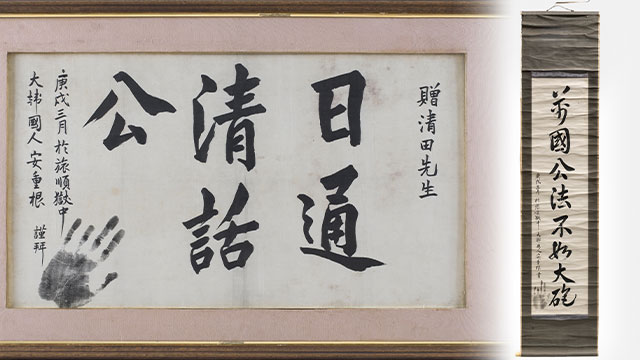 贈清田先生
日通
清話
公
庚戌三月 於旅順獄中
大韓國人 安重根 謹拜
萬國公法不如大砲